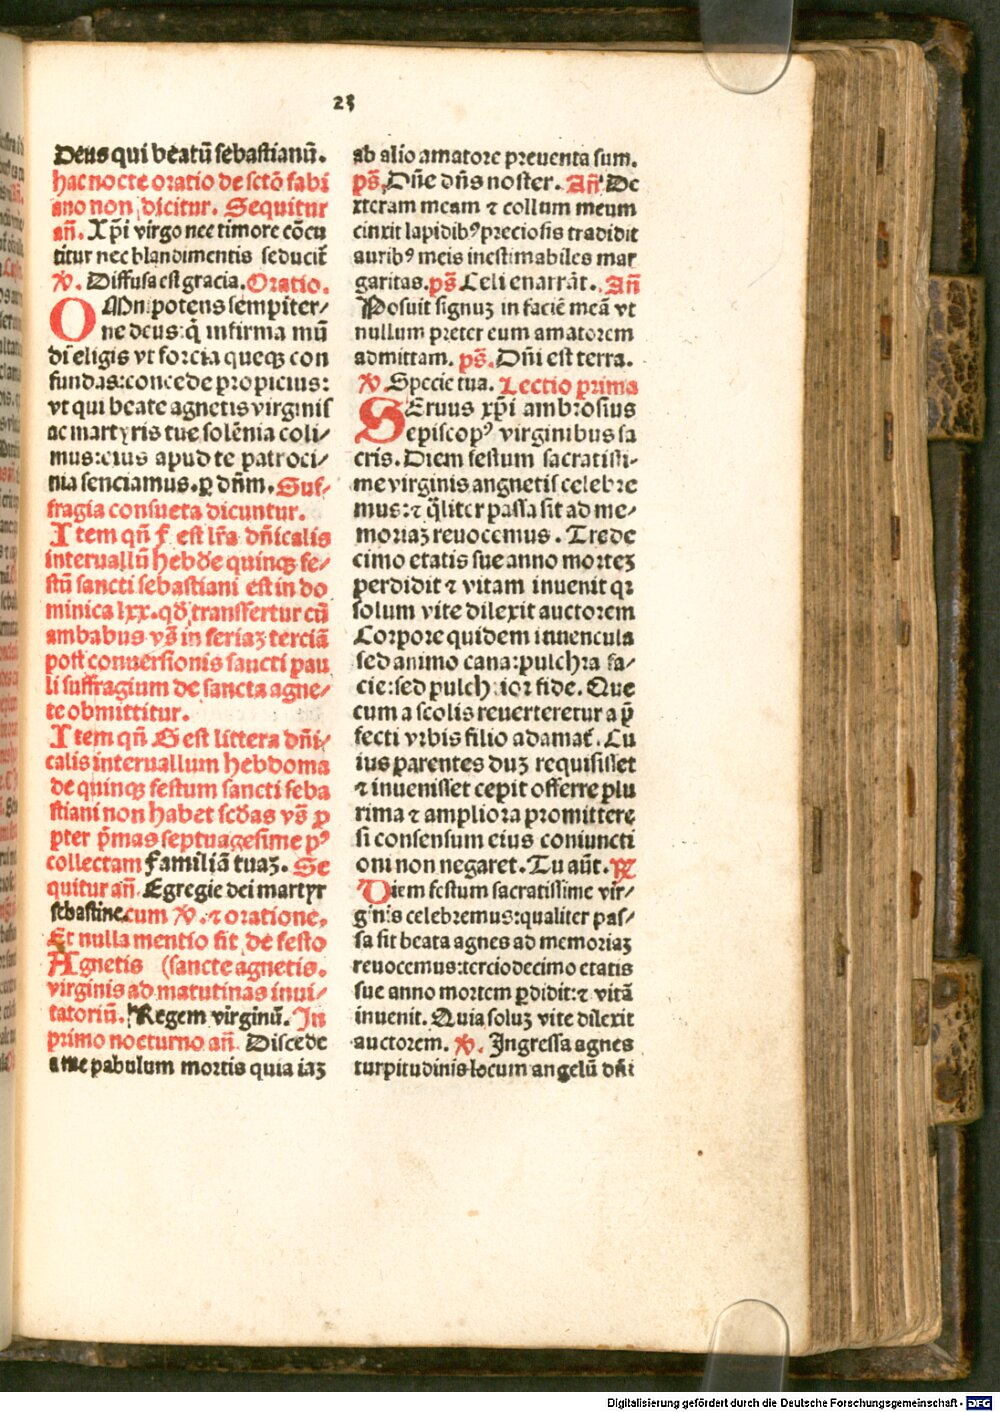 23
Deus qui beatū sebastianū.
hac nocte oratio de sctō fabi
ano non dicitur. Sequitur
añ. Xp̄i virgo nec timore cōcu
titur nec blandimentis seducit̄
℣. Diffusa est gracia. Oratio.
OMnipotens sempiter⸗
ne deus: q̄ infirma mū
di eligis vt forcia queqꝫ con
fundas: concede propicius:
vt qui beate agnetis virginis
ac martyris tue solēnia coli⸗
mus: eius apud te patroci⸗
nia senciamus. ꝑ dn̄m. Suf⸗
fragia consueta dicuntur.
Item qn̄ f est lr̄a dn̄icalis
interuallū hebde quinqꝫ fe⸗
stū sancti sebastiani est in do
minica lxx. qd̄ transffertur cū
ambabus vs̄ in feriaꝫ terciā
post conuersionis sancti pau
li suffragium de sancta agne⸗
te obmittitur.
Item qn̄ G est littera dn̄i⸗
calis interuallum hebdoma
de quinqꝫ festum sancti seba
stiani non habet scd̄as vs̄ ꝓ
pter p̄mas septuagesime pꝰ
collectam Familiā tuaꝫ. Se
quitur añ. Egregie dei martyr
sebastine. cum ℣. ⁊ oratione.
Et nulla mentio fit de festo
Agnetis (sancte agnetis.
virginis ad matutinas inui⸗
tatoriū. Regem virginū. In
primo nocturno añ. Discede
a me pabulum mortis quia iaꝫ
ab alio amatore preuenta sum.
ps̄. Dn̄e dn̄s noster. Añ De
xteram meam ⁊ collum meum
cinxit lapidibꝰ preciosis tradidit
auribꝰ meis inestimabiles mar
garitas. ps̄ Celi enarrāt. Añ
Posuit signuꝫ in faciē meā vt
nullum preter eum amatorem
admittam. ps̄. Dn̄i est terra.
℣. Specie tua. Lectio prima
SEruus xp̄i ambrosius
episcopꝰ virginibus sa
cris. Diem festum sacratissi⸗
me virginis angnetis celebre
mus: ⁊ q̄liter passa sit ad me⸗
moriaꝫ reuocemus. Trede
cimo etatis sue anno morteꝫ
perdidit ⁊ vitam inuenit qꝛ
solum vite dilexit auctorem
Corpore quidem iuuencula
sed animo cana: pulchra fa⸗
cie: sed pulchrior fide. Que
cum a scolis reuerteretur a p̄
fecti vrbis filio adamat̄. Cu
ius parentes duꝫ requisisset
⁊ inuenisset cepit offerre plu
rima ⁊ ampliora promittere
si consensum eius coniuncti
oni non negaret. Tu aūt. ℟
Diem festum sacratissime vir⸗
ginis celebremus: qualiter pas⸗
sa sit beata agnes ad memoriaꝫ
reuocemus: terciodecimo etatis
sue anno mortem ꝑdidit: ⁊ vitā
inuenit. Quia soluꝫ vite dilexit
auctorem. ℣. Ingressa agnes
turpitudinis locum angelū dn̄i
Digitalisierung gefördert durch die Deutsche Forschungsgemeinschaft - DFG